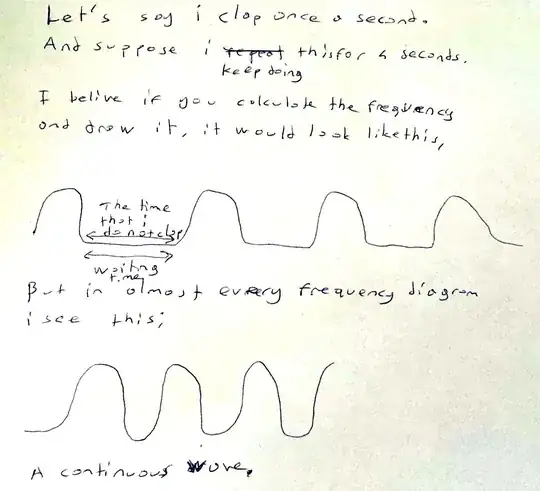 Let's say i clap once a second.
And suppose i repeat this for 4 seconds.
keep doing
I belive if you calculate the frequency
and draw it, it would look like this,
The time
that i
do not clap
waiting
time
But in almost every frequency diagram
i see this;
A continuous wave.